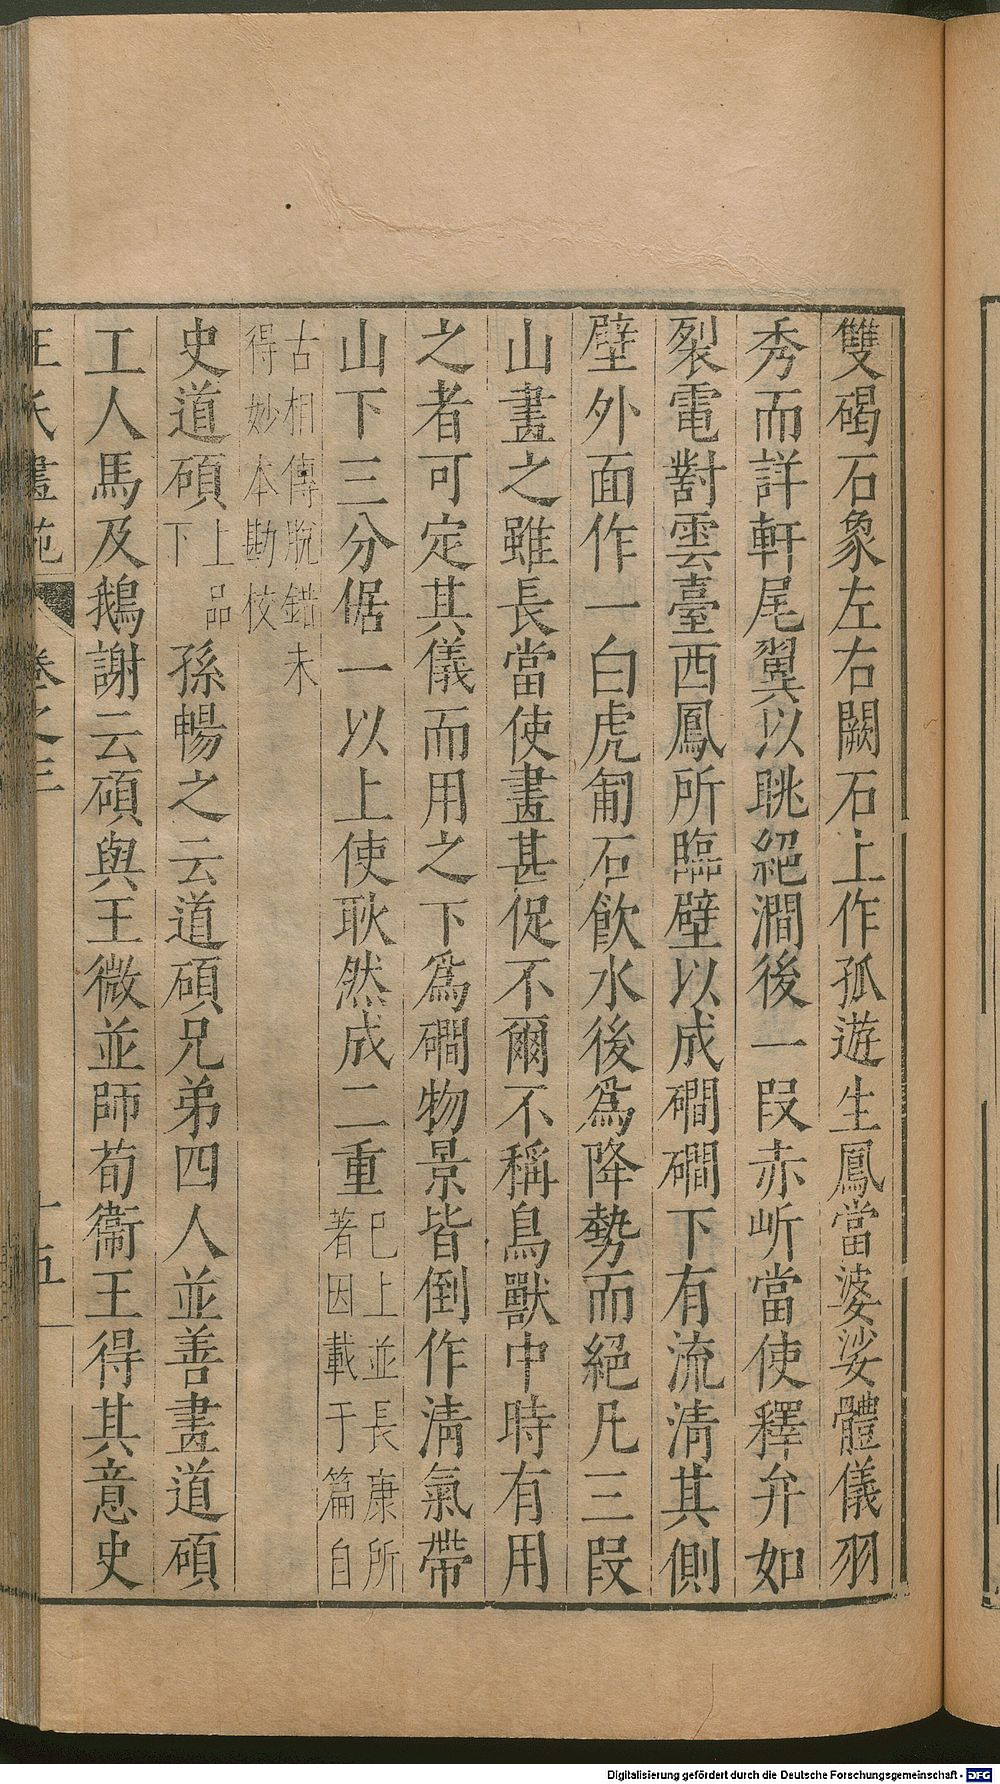 雙碣石象左右闕石上作孤遊生鳳當婆娑體儀羽
秀而詳軒尾翼以眺絕澗後一段赤岓當使釋弁如
裂電對雲臺西鳳所臨壁以成礀礀下有流淸其側
壁外面作一白虎匍石飮水後爲降勢而絕凡三段
山畫之雖長當使畫甚促不爾不稱鳥獸中時有用
之者可定其儀而用之下爲礀物景皆倒作淸氣帶
山下三分倨一以上使耿然成二重
已上並長康所
著因載于篇自
古相傳脫錯未
得妙本勘校
史道碩
上品
下
孫暢之云道碩兄弟四人並善畫道碩
工人馬及鵝謝云碩與王微並師荀衞王得其意史
王氏畫苑
卷之三
十五
Digitalisierung gefördert durch die Deutsche Forschungsgemeinschaft - DFG